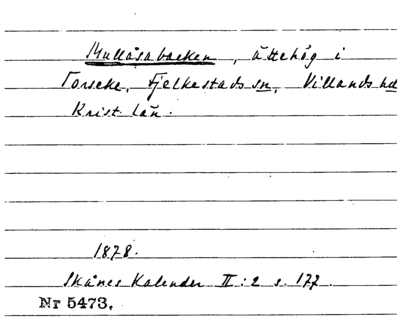 Kullåsabacken, ättehög i
Torseke, Fjelkestads sn, Villands hd
Krist. län.
1878.
Skånes Kalender II:2 s. 177.
Nr 5473.